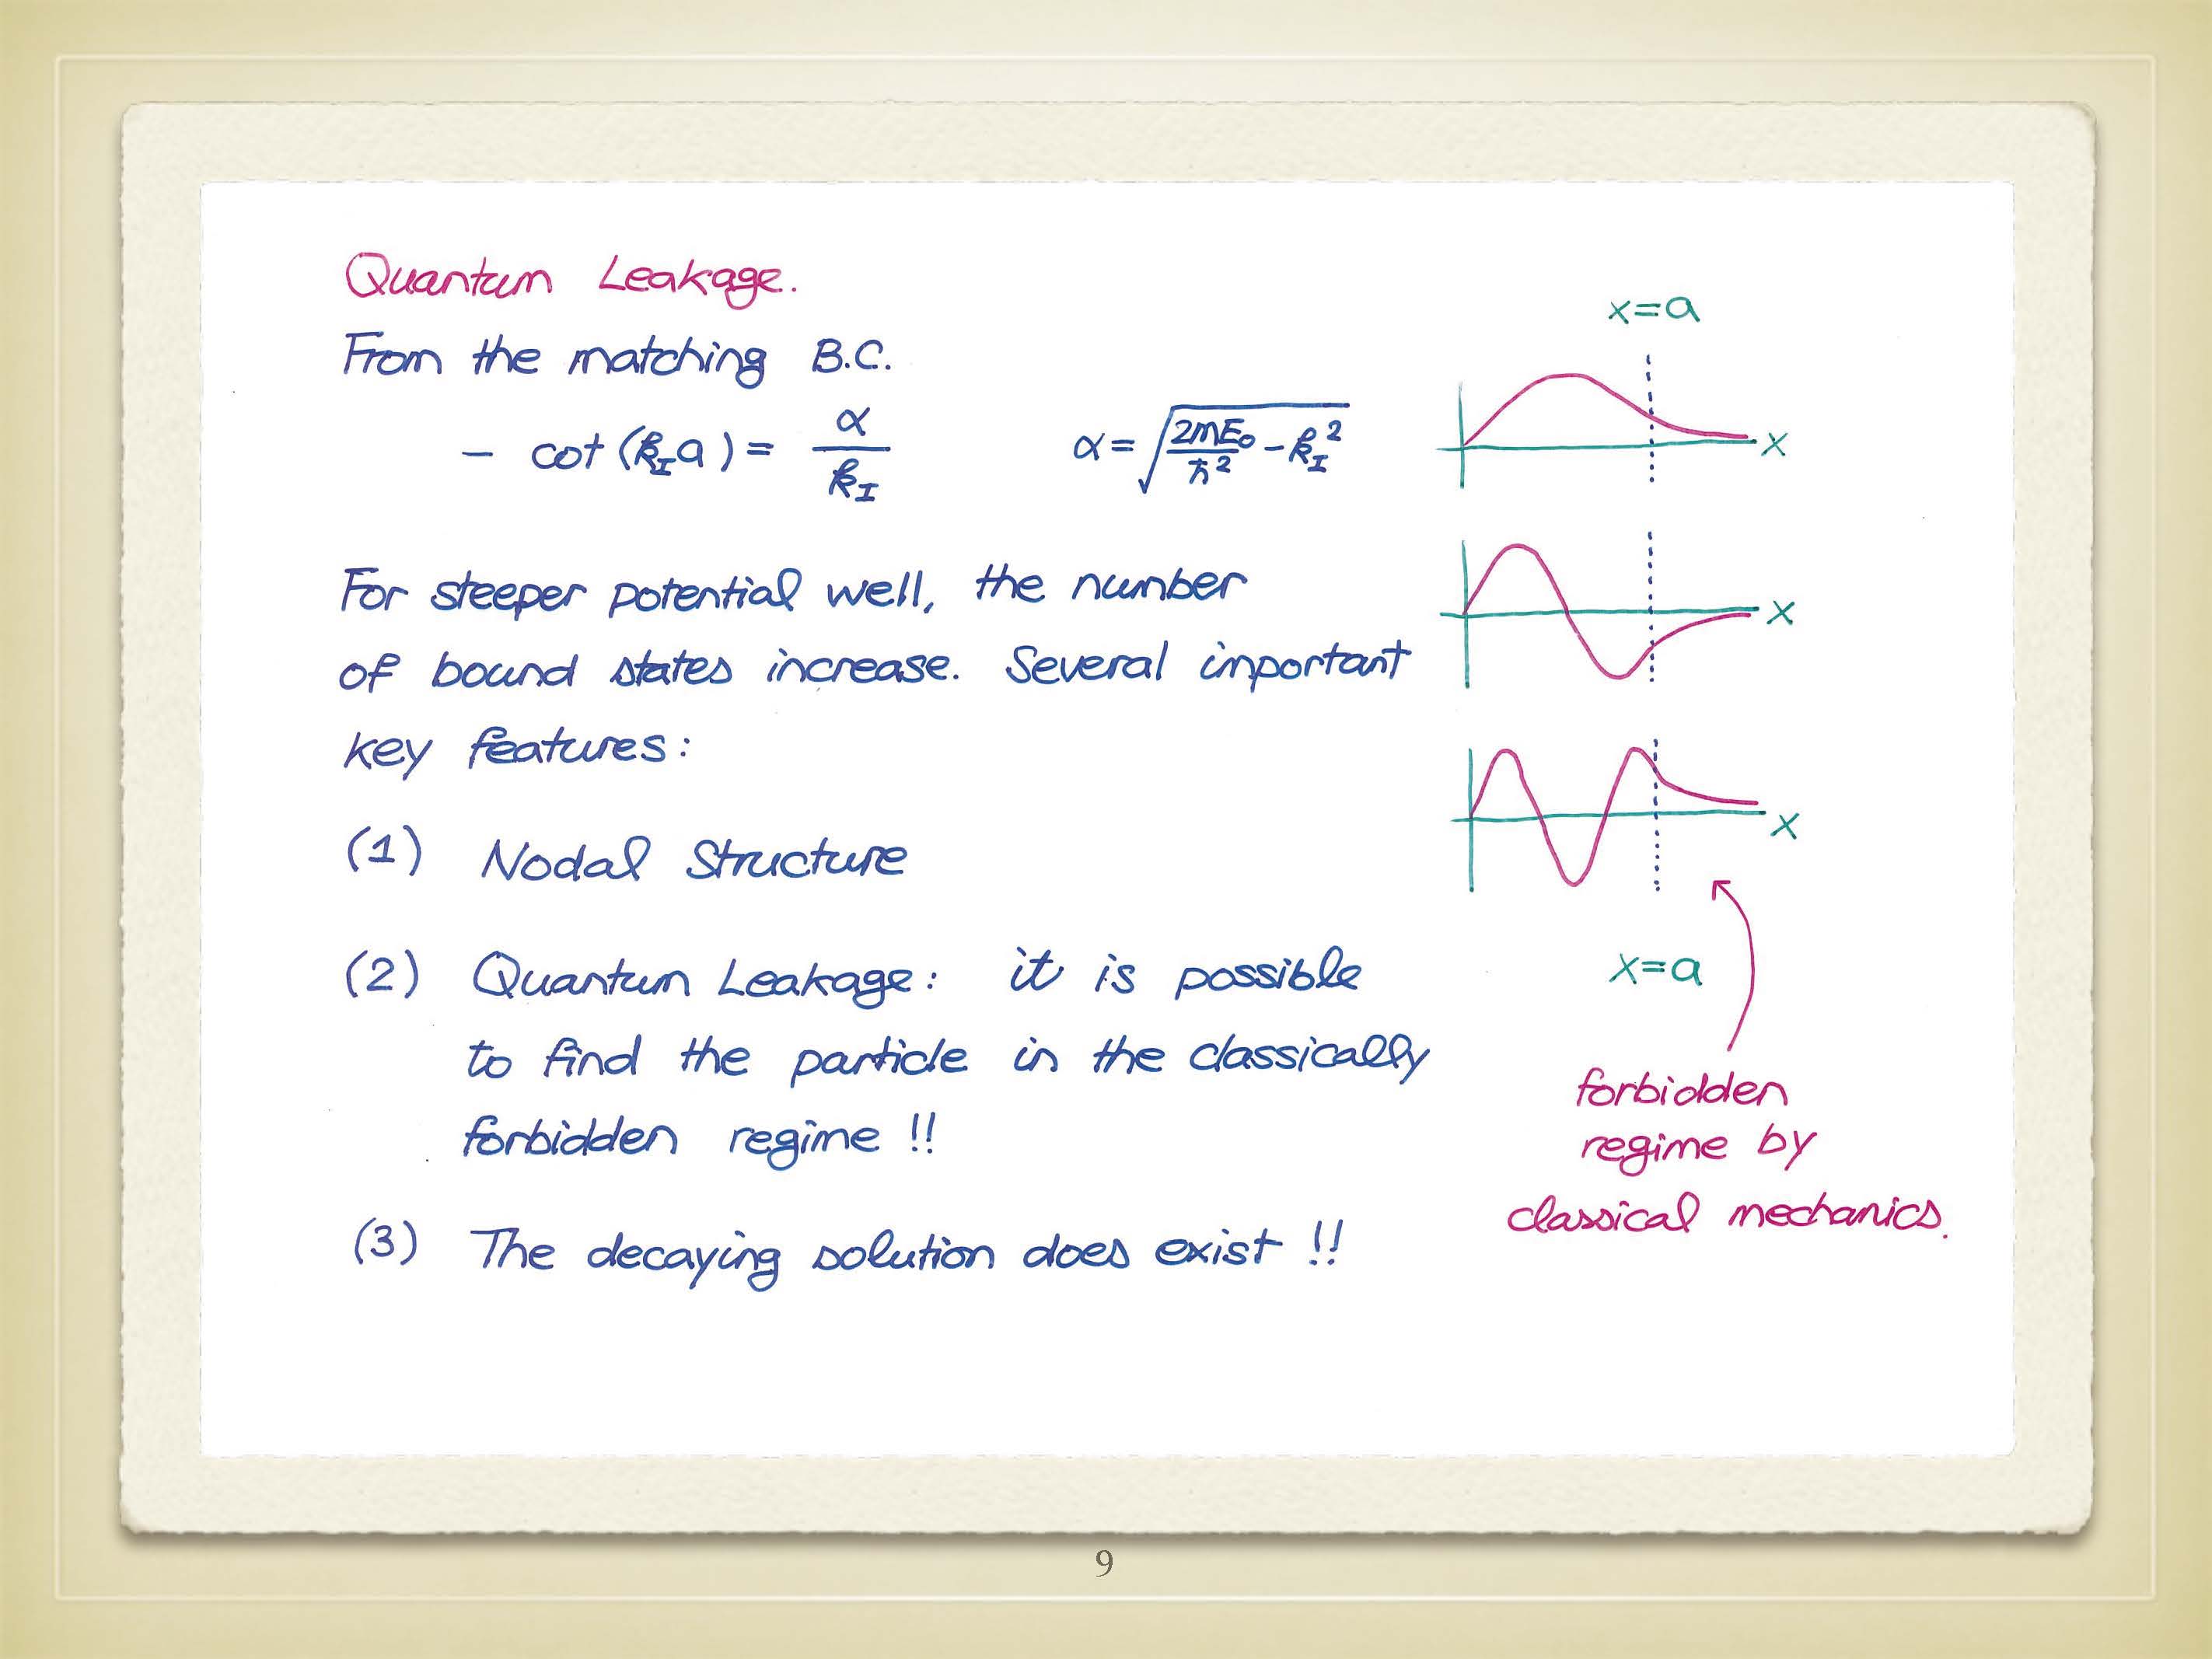 Quantum Leakage.
From the matching B.C.
x=a
- cot (k_I a) = α/k_I
α = √(2mE₀/ħ² - k_I²)
x
For steeper potential well, the number
x
of bound states increase. Several important
key features:
x
(1) Nodal Structure
(2) Quantum Leakage: it is possible
x=a
to find the particle in the classically
forbidden
forbidden regime !!
regime by
classical mechanics.
(3) The decaying solution does exist !!
9